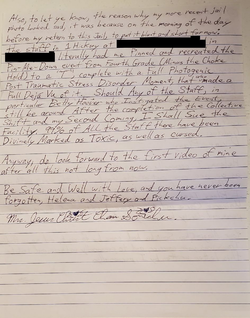 Also, to let ye know, the reason why my more recent Jail
Photo looked sad, it was because on the morning of the day
before my return to this Jail, to put it blunt and short for now,
the staff in 1 Hikray at
literally had me Pinned and recreated the
Up-the-Down event from Fourth Grade (Minus the Choke
Hold) to a T, complete with a Full Photogenic
Post Traumatic Stress Disorder Moment that made a
Mile Joke of it. Should Any of the Staff, in
particular Betty Hoover who Instigated the Event,
still be around After the completion of the Collective
Suit and my Second Coming, I Shall Sue the
Facility. 99% of All the Staff there have been
Divinely Marked as Toxic, as well as Cursed.
Anyway, do look forward to the first video of mine
after all this not long from now.
Be Safe and Well with Love, and you have never been
Forgotten, Helena and Jeffery and Pickachu.
Mrs. Jesus Christ Chan